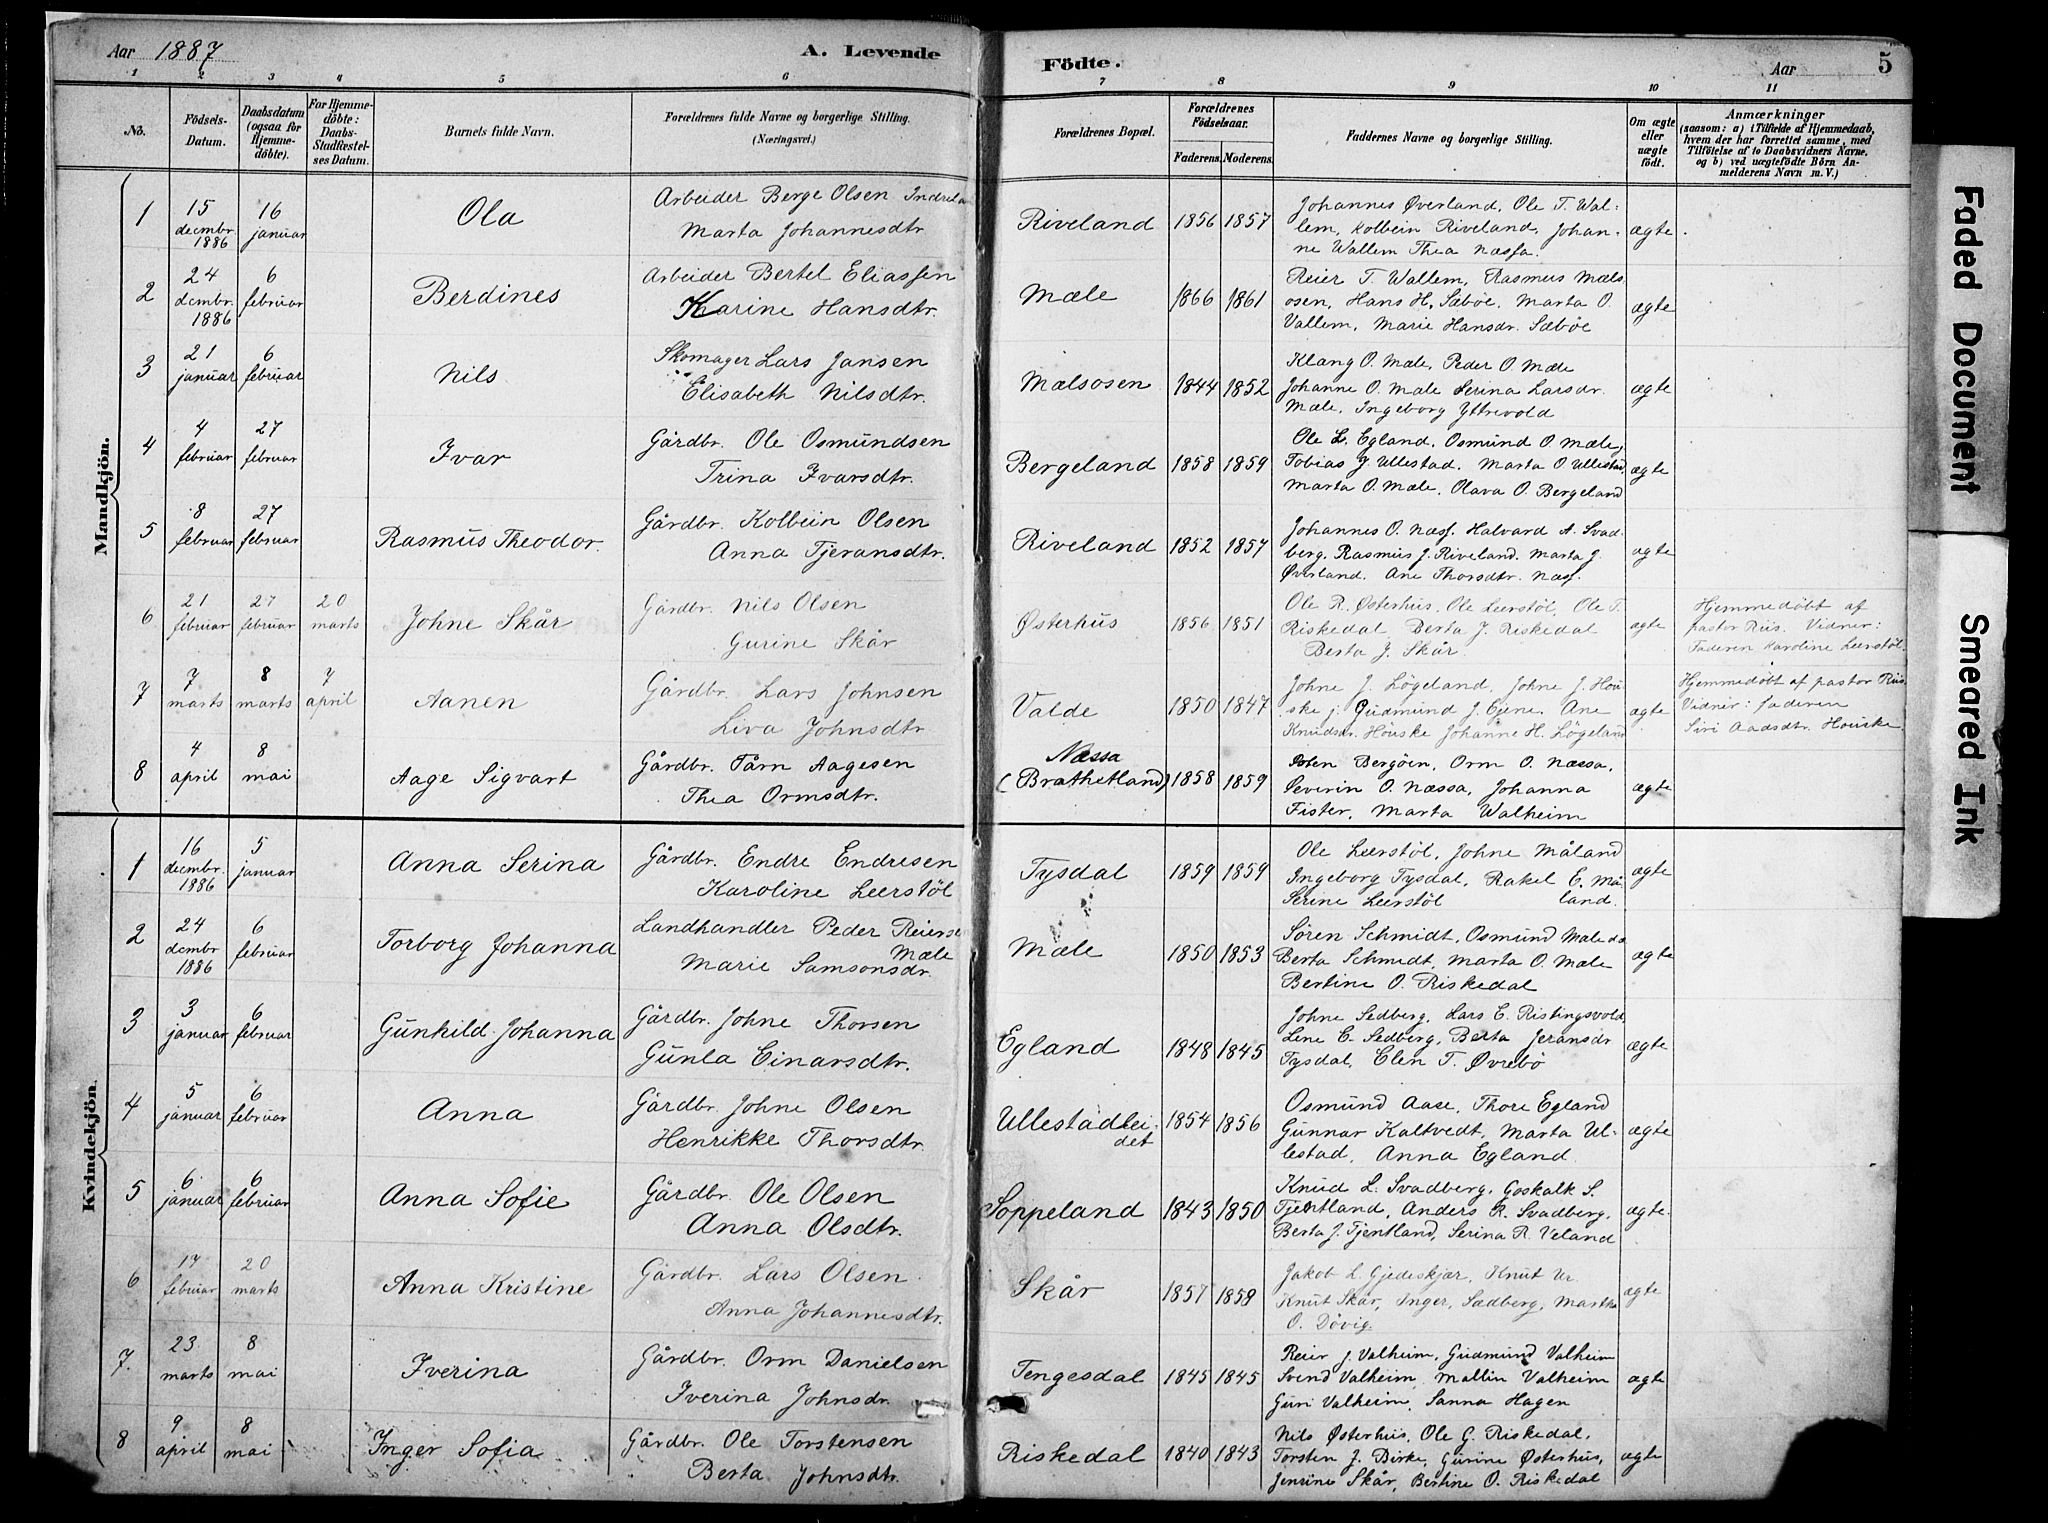 Aar 1887
A. Levende
Födte.
Aar
5
1 2 3 4 5 6 7 8 9 10 11
No.
Födsels-Datum.
Daabsdatum (ogsaa for Hjemme-döbte).
For Hjemme-döbte: Daabs-Stadfæstel-ses Datum.
Barnets fulde Navn.
Forældrenes fulde Navne og borgerlige Stilling. (Næringsvei.)
Forældrenes Bopæl.
Forældrenes Födselsaar.
Faderens. Moderens.
Faddernes Navne og borgerlige Stilling.
Om ægte eller uægte födt.
Anmærkninger
(saasom: a) i Tilfælde af Hjemmedaab, hvem der har forrettet samme, med Tilföielse af to Daabsvidners Navne. og b) ved uægtefödte Börn An-melderens Navn m. V.)
Mandkjön.
1 15 decmbr. 1886 16 januar Ola Arbeider Berge Olsen
Marta Johannesdtr. Riveland 1856 1857 Johannes Øverland, Ole T. Wal-
lem, Kolbein Riveland, Johan-
ne Wallem Thea Næssa. ægte
2 24 dcmbr. 1886 6 februar Berdines Arbeider Bertel Eliassen
Karine Hansdtr. Mæle 1866 1861 Reier T. Wallem, Rasmus Mæls-
osen, Hans H. Sæbøe, Marta O.
Vallem, Marie Hansdr. Sæbøe ægte
3 21 januar 6 februar Nils Skomager Lars Jansen
Elisabeth Nilsdtr. Mælsosen 1844 1852 Klang O. Mæle, Peder O. Mæle
Johanne O. Mæle Serina Larsdr.
Mæle, Ingeborg Yttrevold ægte
4 4 februar 27 februar Ivar Gårdbr. Ole Osmundsen
Trina Ivarsdtr. Bergeland 1858 1859 Ole L. Egland, Osmund O. Mæle,
Tobias J. Ullestad. Marta O. Ullestad,
Marta O. Mæle, Olava O. Bergeland ægte
5 8 februar 27 februar Rasmus Theodor. Gårdbr. Kolbein Olsen
Anna Tjeransdtr. Riveland 1852 1857 Johannes O. Næsf. Halvard A. Svad-
berg, Rasmus J. Riveland. Marta J.
Øverland. Ane Thorsdtr. Næsf. ægte
6 21 februar 27 februar 20 marts Johne Skår Gårdbr. Nils Olsen
Gurine Skår Østerhus 1856 1851 Ole R. Østerhus, Ole Leerstøl, Ole T.
Riskedal Berta J. Riskedal
Berta J. Skår. ægte Hjemmedøbt af
pastor Riis. Vidner:
Faderen Karoline Leerstøl.
7 7 marts 8 marts 7 april Aanen Gårdbr. Lars Johnsen
Liva Johnsdtr. Valde 1850 1847 Johne J. Løgeland, Johne J. Hou-
ske, Gudmund J. Ejene. Ane
Knudsdr. Houske Johanne H. Løgeland ægte Hjemmedøbt af pastor Riis
Vidner: faderen
Siri Aadsdtr. Houske
8 4 april 8 mai Aage Sigvart Gårdbr. Tårn Aagesen
Thea Ormsdtr. Næssa
(Brathetland) 1858 1859 Bergøen, Orm O. Næssa,
Severin O. Næssa, Johanna
Fister, Marta Walheim ægte
Kvindekjön.
1 16 decmbr. 1886 5 januar Anna Serina Gårdbr. Endre Endresen
Karoline Leerstøl Tysdal 1859 1859 Ole Leerstøl, Johne Måland
Ingeborg Tysdal, Rakel E. Må-
Serine Leerstøl land. ægte
2 24 dcmbr. 1886 6 februar Torborg Johanna Landhandler Peder Reierse
Mæle
Marie Samsonsdr. Mæle 1850 1853 Søren Schmidt, Osmund Mæle
Berta Schmidt, Marta O. Mæle
Bertine O. Riskedal ægte
3 3 januar 6 februar Gunhild Johanna Gårdbr. Johne Thorsen
Gunla Einarsdtr. Egland 1848 1845 Johne Sedberg, Lars E. Ristingsvold
Lene E. Sedberg, Berta Jeransdr
Tysdal, Elen T. Øvrebø ægte
4 5 januar 6 februar Anna Gårdbr. Johne Olsen
Henrikke Thorsdtr. Ullestadlei-
det 1854 1856 Osmund Aase, Thore Egland
Gunnar Kaltvedt, Marta Ul-
lestad, Anna Egland. ægte
5 6 januar 6 februar Anna Sofie Gårdbr. Ole Olsen
Anna Olsdtr. Soppeland 1843 1850 Knud L. Svadberg, Goskalk S.
Tjentland, Anders R. Svadberg,
Berta J. Tjentland, Serina R. Veland ægte
6 17 februar 20 marts Anna Kristine Gårdbr. Lars Olsen
Anna Johannesdtr. Skår 1857 1858 Jakob L. Gjedeskjær, Knut
Knut Skår, Inger Sædberg, Martha
O. Døvig. ægte
7. 23 marts 8 mai Iverina Gårdbr. Orm Danielsen
Iverina Johnsdr. Tengesdal 1845 1845 Reier J. Valheim, Gudmund Valheim
Svend Valheim, Mallin Valheim
Guri Valheim, Sanna Hagen ægte
8 9 april 8 mai Inger Sofia Gårdbr. Ole Torstensen
Berta Johnsdtr. Riskedal 1840 1843 Nils Østerhus, Ole G. Riskedal,
Torsten J. Birke, Gurine Østerhus,
Jensine Skår, Bertine O. Riskedal ægte
Faded Document
Smeared Ink